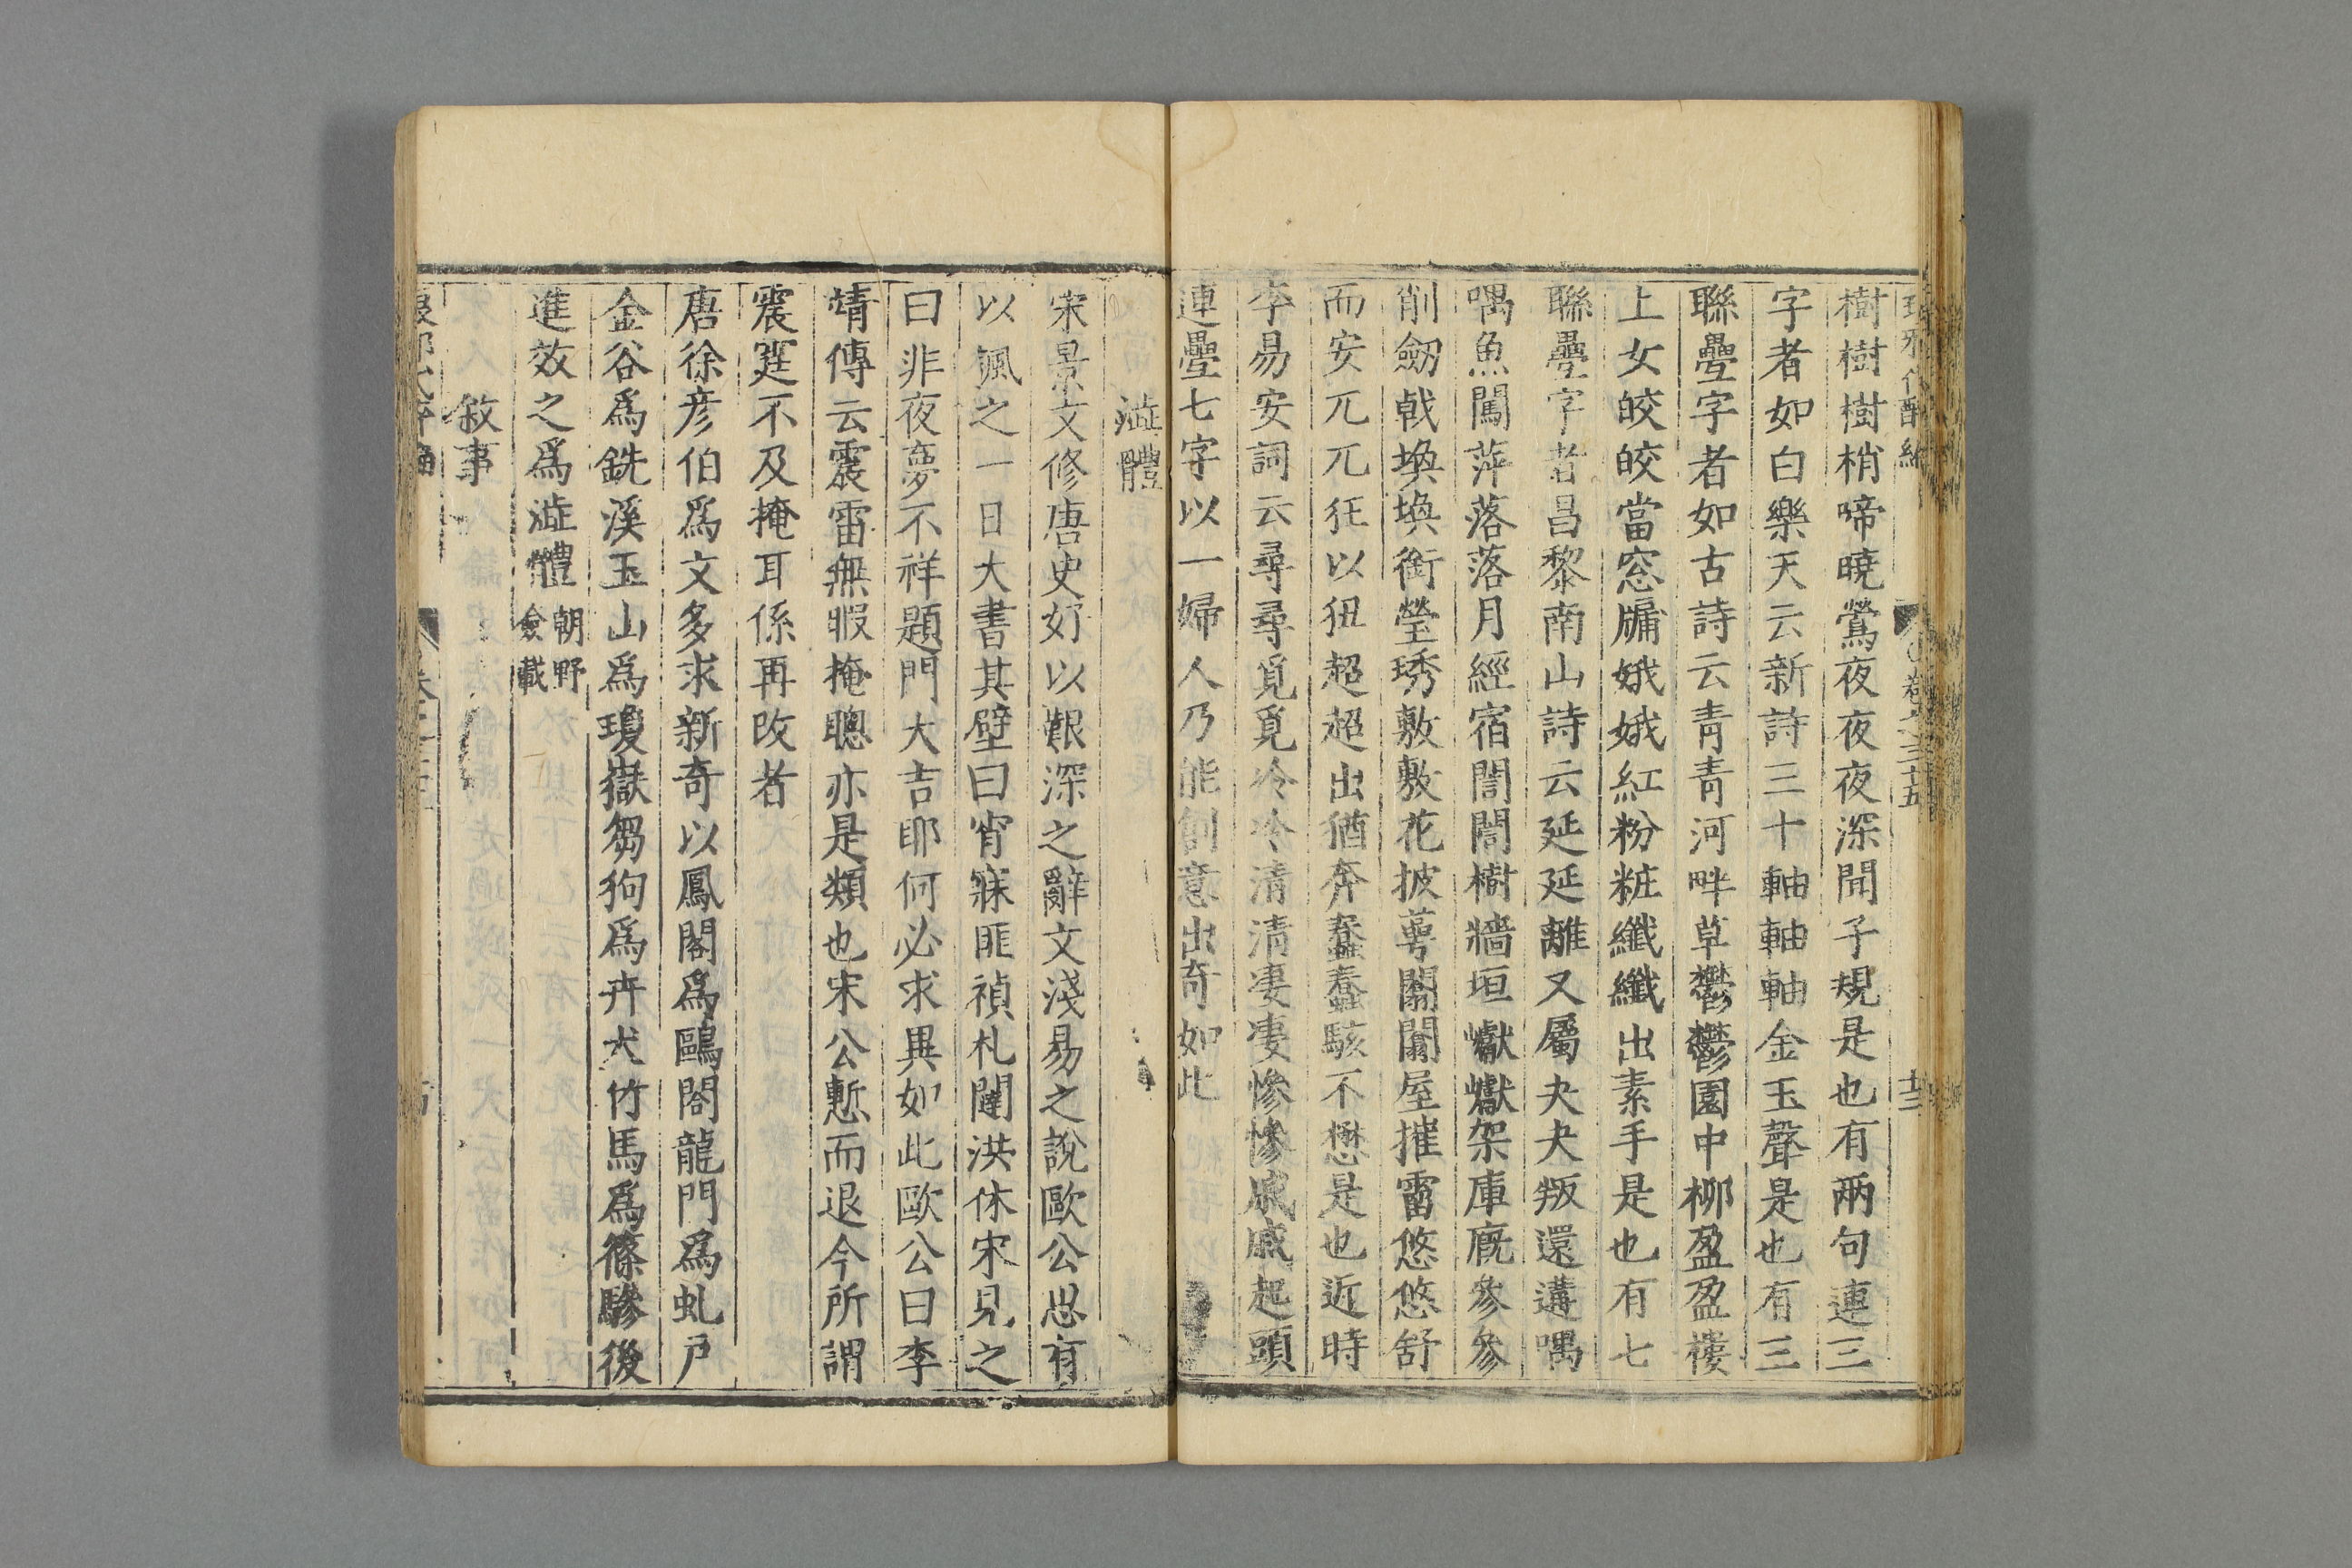 樹樹樹梢啼曉鶯夜夜夜深聞子規是也有兩句連三
字者如白樂天云新詩三十軸軸軸金玉聲是也有三
聯疊字者如古詩云青青河畔草鬱鬱園中柳盈盈樓
上女皎皎當窓牖娥娥紅粉粧纖纖出素手是也有七
聯疊字者昌黎南山詩云延延離又屬夬夬叛還遘喁
喁魚闖萍落落月經宿誾誾樹牆垣巘巘架庫廐參參
削劒戟煥煥銜瑩琇敷敷花披萼闟闟屋摧霤悠悠舒
而安兀兀狂以狃超超出猶奔蠢蠢駭不懋是也近時
李易安詞云尋尋覓覓冷冷清清凄凄慘慘戚戚起頭
連疊七字以一婦人乃能創意出奇如此
澁體
宋景文修唐史好以艱深之辭文淺易之說歐公思有
以諷之一日大書其壁曰宵寐匪禎札闥洪休宋見之
曰非夜夢不祥題門大吉耶何必求異如此歐公曰李
靖傳云震雷無暇掩聰亦是類也宋公慙而退今所謂
震霆不及掩耳係再改者
唐徐彦伯爲文多求新奇以鳳閣爲鷗閣龍門爲虬戶
金谷爲銑溪玉山爲瓊嶽芻狗爲卉犬竹馬爲篠驂後
進效之爲澁體朝野僉載
敘事